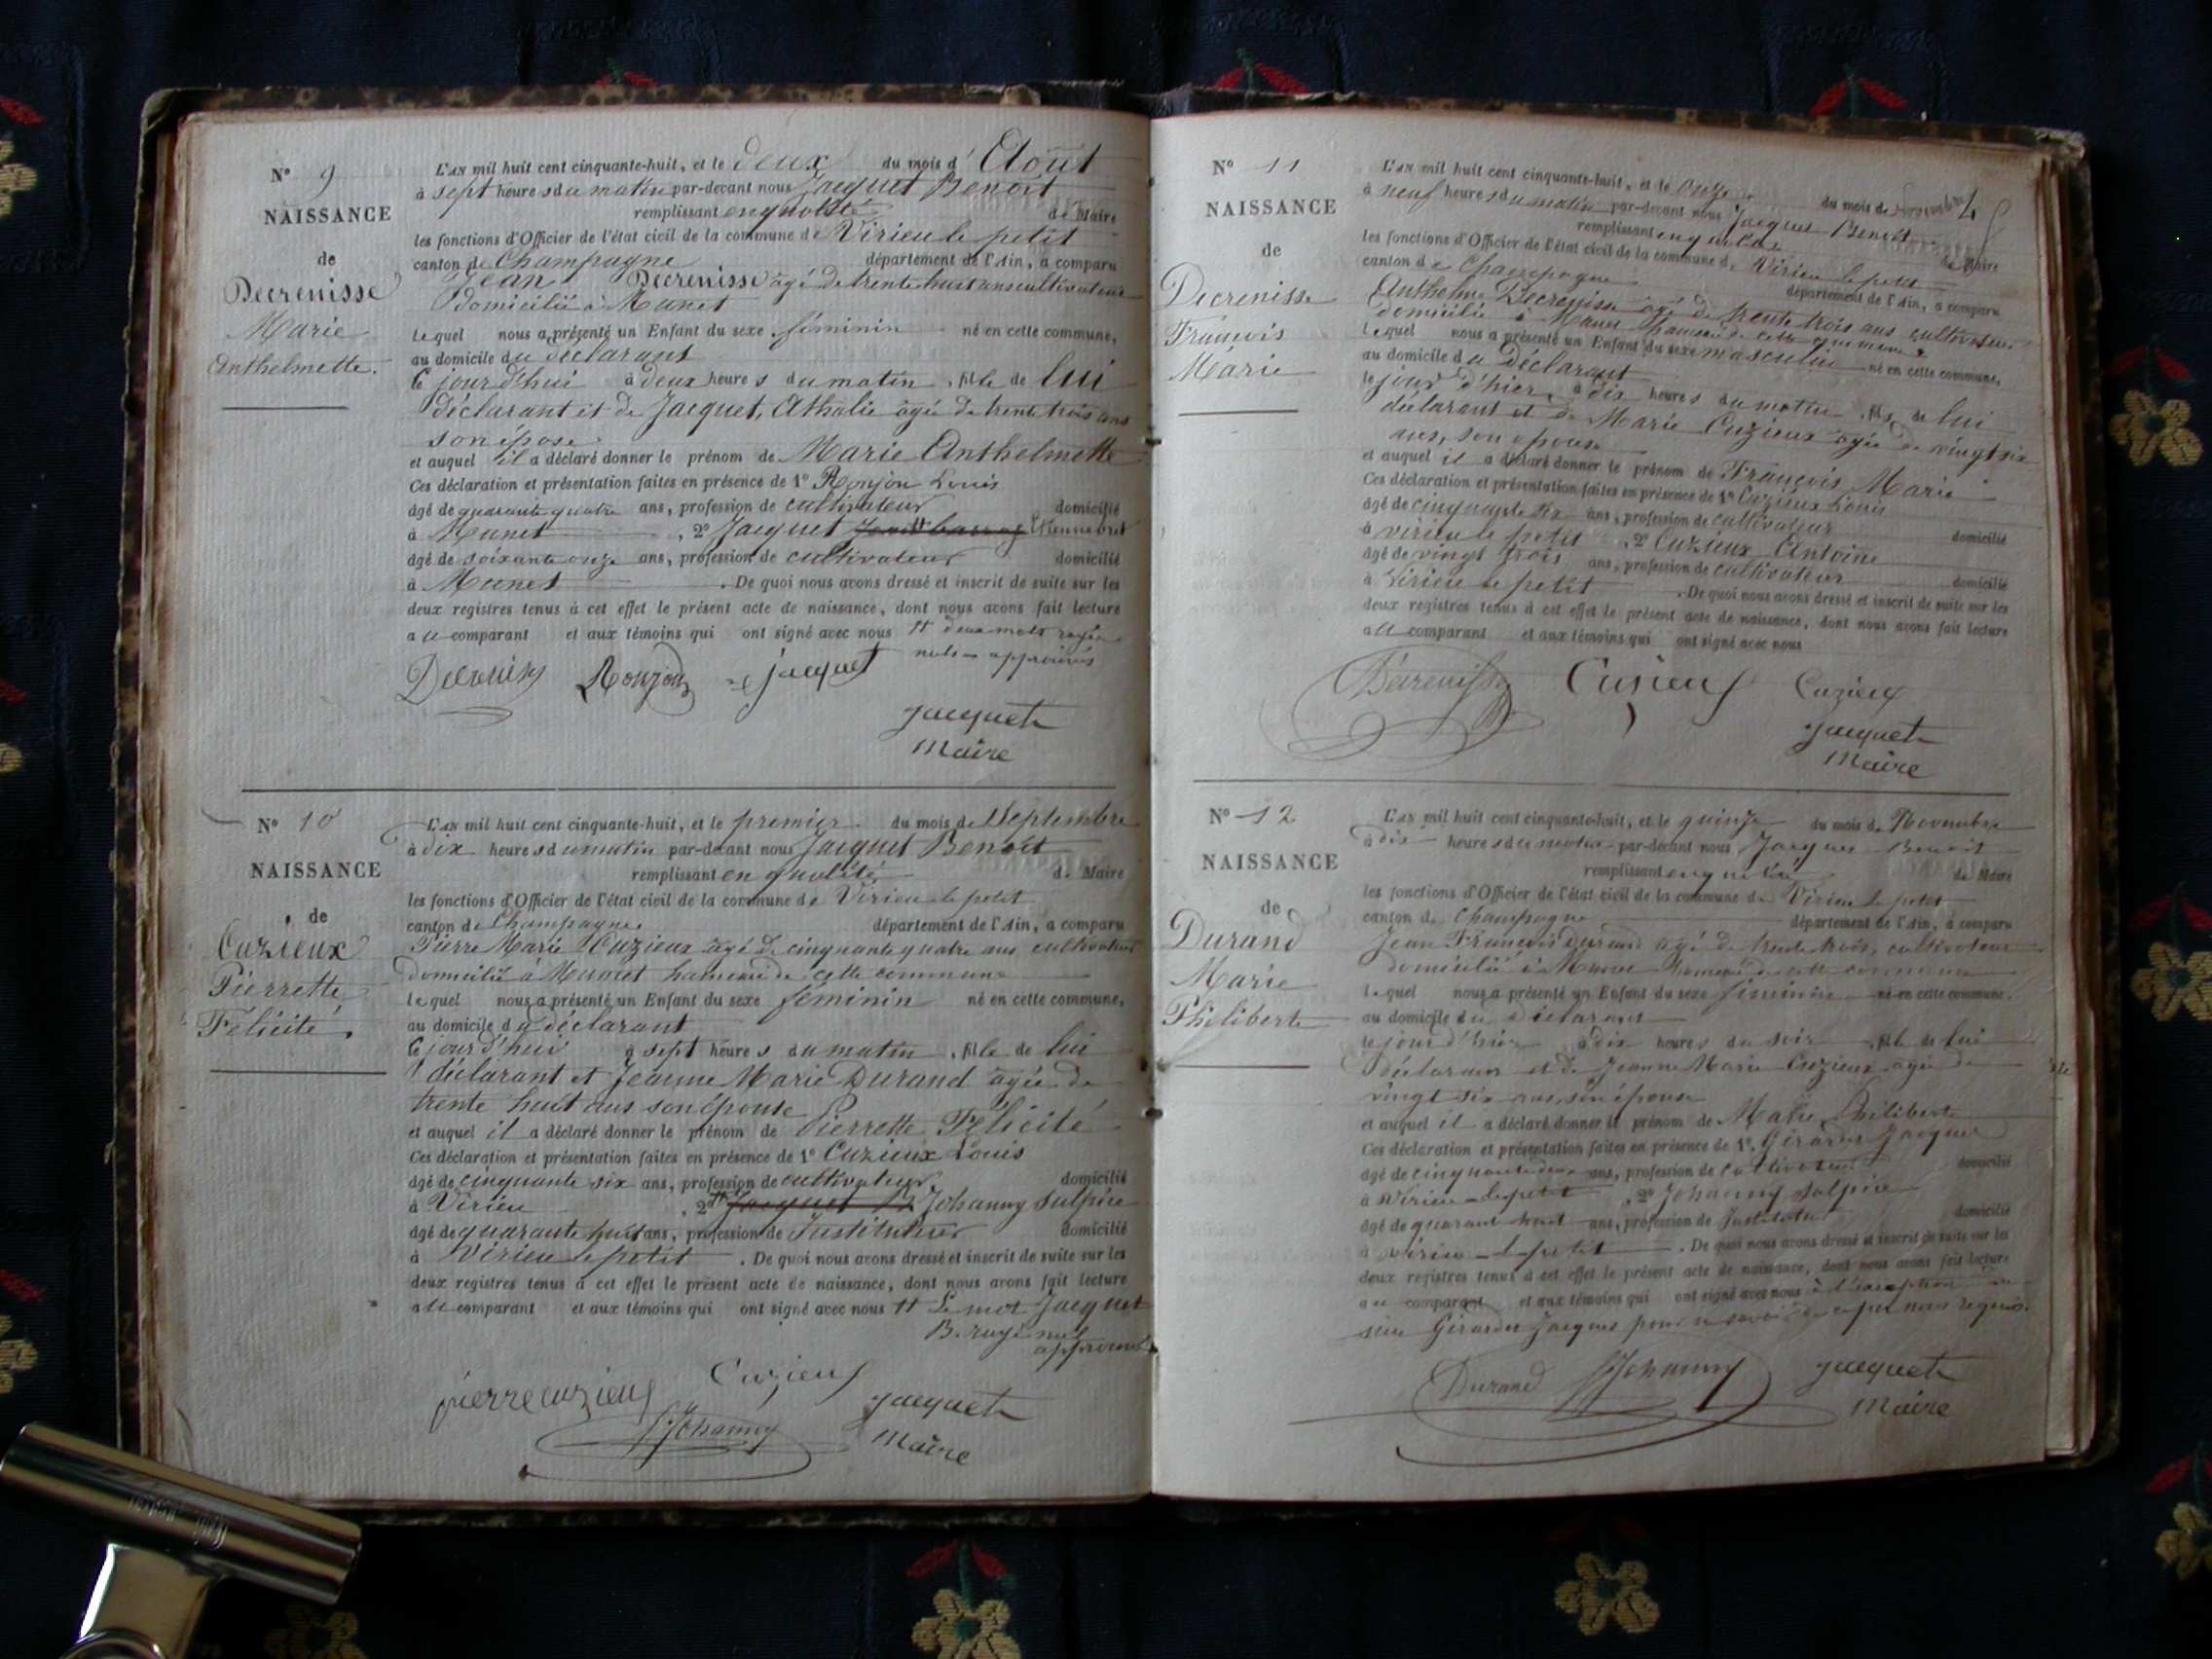 N° 9
NAISSANCE
de
Decrenisse
Marie
Anthelmette.
L'AN mil huit cent cinquante-huit, et le deux du mois d' Août
à sept heures du matin par-devant nous Jacquet Benoit
remplissant en qualité de Maire
les fonctions d'Officier de l'état civil de la commune de Virieu le petit
canton de Champagne département de l'Ain, a comparu
Jean Decrenisse agé de trente huit ans cultivateur
domicilié à Munet
lequel nous a présenté un Enfant du sexe féminin né en cette commune,
au domicile du déclarant
le jourd'hui à deux heures du matin, fille de lui
déclarant et de Jacquet, Athalie agée de trente trois ans
son épose
et auquel il a déclaré donner le prénom de Marie Anthelmette
Ces déclaration et présentation faites en présence de 1° Ronjon Louis
âgé de quarante quatre ans, profession de cultivateur domicilié
à Munet , 2° Jacquet Etienne
âgé de soixante onze ans, profession de cultivateur domicilié
à Munet . De quoi nous avons dressé et inscrit de suite sur les
deux registres tenus à cet effet le présent acte de naissance, dont nous avons fait lecture
au comparant et aux témoins qui ont signé avec nous deux mots rayés
nuls approuvés
Ronjon Jacquet
Jacquet
Maire
N° 10
NAISSANCE
de
Cuzieux
Pierrette
Félicité.
L'AN mil huit cent cinquante-huit, et le premier du mois de Septembre
à dix heures du matin par-devant nous Jacquet Benoit
remplissant en qualité de Maire
les fonctions d'Officier de l'état civil de la commune de Virieu le petit
canton de Champagne département de l'Ain, a comparu
Pierre Marie Cuzieux agé de cinquante quatre ans cultivateur
domicilié à Munet hameau de cette commune
lequel nous a présenté un Enfant du sexe féminin né en cette commune,
au domicile du déclarant
le jourd'hui à sept heures du matin, fille de lui
déclarant et Jeanne Marie Durand agée de
trente huit ans son épouse
et auquel il a déclaré donner le prénom de Pierrette Félicité
Ces déclaration et présentation faites en présence de 1° Cuzieux Louis
âgé de cinquante six ans, profession de cultivateur domicilié
à Virieu , 2° Jacquet B Johanny Sulpice
âgé de quarante huit ans, profession de Instituteur domicilié
à Virieu le petit . De quoi nous avons dressé et inscrit de suite sur les
deux registres tenus à cet effet le présent acte de naissance, dont nous avons fait lecture
au comparant et aux témoins qui ont signé avec nous Le mot Jacquet
B. rayé nul
approuvé
pierre cuzieux Cuzieux Jacquet
Johanny Maire
N° 11
NAISSANCE
de
Decrenisse
François
Marie
L'AN mil huit cent cinquante-huit, et le onze du mois de
à neuf heures du matin par-devant nous Jacquet Benoit
remplissant en qualité de Maire
les fonctions d'Officier de l'état civil de la commune de Virieu le petit
canton de Champagne département de l'Ain, a comparu
Anthelme Decrenisse agé de trente trois ans cultivateur
domicilié à Munet hameau de cette commune
lequel nous a présenté un Enfant du sexe masculin né en cette commune,
au domicile du Déclarant
le jour d'hier à dix heures du matin, fils de lui
déclarant et de Marie Cuzieux agée de vingt six
ans, son épouse
et auquel il a déclaré donner le prénom de François Marie
Ces déclaration et présentation faites en présence de 1° Cuzieux Louis
âgé de cinquante six ans, profession de cultivateur domicilié
à virieu le petit , 2° Cuzieux Antoine
âgé de vingt trois ans, profession de cultivateur domicilié
à Virieu le petit . De quoi nous avons dressé et inscrit de suite sur les
deux registres tenus à cet effet le présent acte de naissance, dont nous avons fait lecture
au comparant et aux témoins qui ont signé avec nous
Decrenisse Cuzieux Cuzieux
Jacquet
Maire
N° 12
NAISSANCE
de
Durand
Marie
Philiberte
L'AN mil huit cent cinquante-huit, et le quinze du mois de Novembre
à dix heures du matin par-devant nous Jacquet Benoit
remplissant en qualité de Maire
les fonctions d'Officier de l'état civil de la commune de Virieu le petit
canton de Champagne département de l'Ain, a comparu
Jean François Durand agé de trente trois, cultivateur
domicilié à Munet hameau de cette commune
lequel nous a présenté un Enfant du sexe féminin né en cette commune.
au domicile du déclarant
le jour d'hier à dix heures du soir, fille de lui
Déclarant et de Jeanne Marie Cuzieux agée de
vingt six ans, son épouse
et auquel il a déclaré donner le prénom de Marie Philiberte
Ces déclaration et présentation faites en présence de 1° Girardet Jacques
âgé de cinquante deux ans, profession de cultivateur domicilié
à Virieu-le-petit , 2° Johanny Sulpice
âgé de quarante huit ans, profession de Instituteur domicilié
à Virieu-le-petit . De quoi nous avons dressé et inscrit de suite sur les
deux registres tenus à cet effet le présent acte de naissance, dont nous avons fait lecture
au comparant et aux témoins qui ont signé avec nous à l'exception du
sieur Girardet Jacques pour ne savoir de ce par nous requis.
Durand Johanny Jacquet
Maire